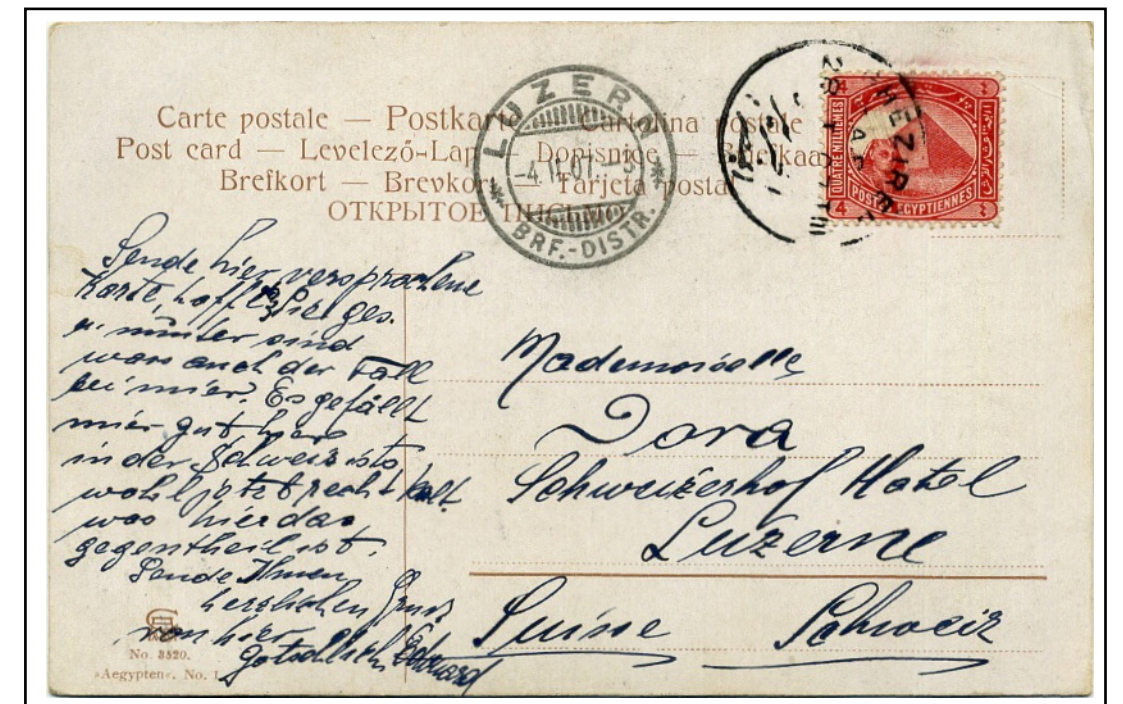 Carte postale — Postkarte — Cartolina postale
Post card — Levelező-Lap — Dopisnice — Briefkaart
Brefkort — Brevkort — Tarjeta postal
ОТКРЫТОЕ ПИСЬМО
LUZERN
-4.II.07.
* BRF.-DISTR. *
GHEZIREH
QUATRE MILLIEMES
4 POSTES EGYPTIENNES 4
Sende hier versprochene
Karte, hoffe Sie ges.
u. munter sind
was auch der Fall
bei mier. Es gefällt
mier gut hier
in der Schweiz ists
wohl jetzt recht kalt.
was hier das
gegentheil ist.
Sende Ihnen
herzlichen Gruss
von hier
Edouard
Mademoiselle
Dora
Schweizerhof Hotel
Luzerne
Suisse Schweiz
No. 3520.
»Aegypten«. No. 1